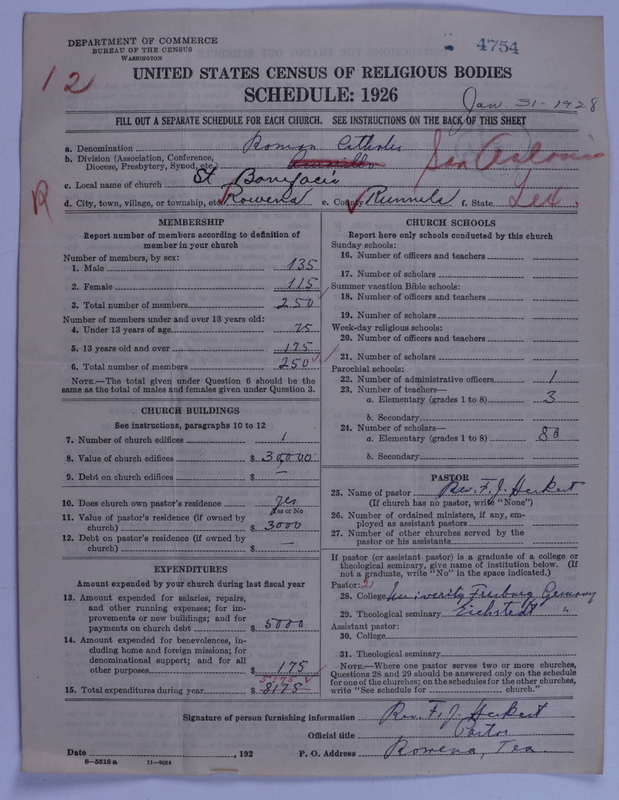 DEPARTMENT OF COMMERCE
BUREAU OF THE CENSUS
WASHINGTON
4754
12
UNITED STATES CENSUS OF RELIGIOUS BODIES
SCHEDULE: 1926
Jan. 31-1928
FILL OUT A SEPARATE SCHEDULE FOR EACH CHURCH. SEE INSTRUCTIONS ON THE BACK OF THIS SHEET
a. Denomination Roman Catholic
b. Division (Association, Conference, Diocese, Presbytery, Synod, etc.) Amarillo San Antonio
c. Local name of church St Boniface
R
d. City, town, village, or township, etc. Rowena e. County Runnels f. State Tex
MEMBERSHIP
Report number of members according to definition of
member in your church
Number of members, by sex:
1. Male 135
2. Female 115
3. Total number of members 250
Number of members under and over 13 years old:
4. Under 13 years of age 75
5. 13 years old and over 175
6. Total number of members 250
NOTE.—The total given under Question 6 should be the
same as the total of males and females given under Question 3.
CHURCH BUILDINGS
See instructions, paragraphs 10 to 12
7. Number of church edifices 1
8. Value of church edifices $ 30,000
9. Debt on church edifices $ —
10. Does church own pastor's residence yes
Yes or No
11. Value of pastor's residence (if owned by
church) $ 3000
12. Debt on pastor's residence (if owned by
church) $ —
EXPENDITURES
Amount expended by your church during last fiscal year
13. Amount expended for salaries, repairs,
and other running expenses; for im-
provements or new buildings; and for
payments on church debt $ 5000
14. Amount expended for benevolences, in-
cluding home and foreign missions; for
denominational support; and for all
other purposes $ 175
5175
15. Total expenditures during year $ 8175
CHURCH SCHOOLS
Report here only schools conducted by this church
Sunday schools:
16. Number of officers and teachers
17. Number of scholars
Summer vacation Bible schools:
18. Number of officers and teachers
19. Number of scholars
Week-day religious schools:
20. Number of officers and teachers
21. Number of scholars
Parochial schools:
22. Number of administrative officers 1
23. Number of teachers—
a. Elementary (grades 1 to 8) 3
b. Secondary
24. Number of scholars—
a. Elementary (grades 1 to 8) 80
b. Secondary
PASTOR
25. Name of pastor Rev. F. J. Heckert
(If church has no pastor, write "None")
26. Number of ordained ministers, if any, em-
ployed as assistant pastors
27. Number of other churches served by the
pastor or his assistants
If pastor (or assistant pastor) is a graduate of a college or
theological seminary, give name of institution below. (If
not a graduate, write "No" in the space indicated.)
Pastor: 2
28. College University Freiburg Germany
29. Theological seminary Eichstedt "
Assistant pastor:
30. College
31. Theological seminary
NOTE.—Where one pastor serves two or more churches,
Questions 28 and 29 should be answered only on the schedule
for one of the churches; on the schedules for the other churches,
write "See schedule for church."
Signature of person furnishing information Rev. F. J. Heckert
Official title Pastor
Date , 192 P. O. Address Rowena, Tex
8-5518a 11-9054